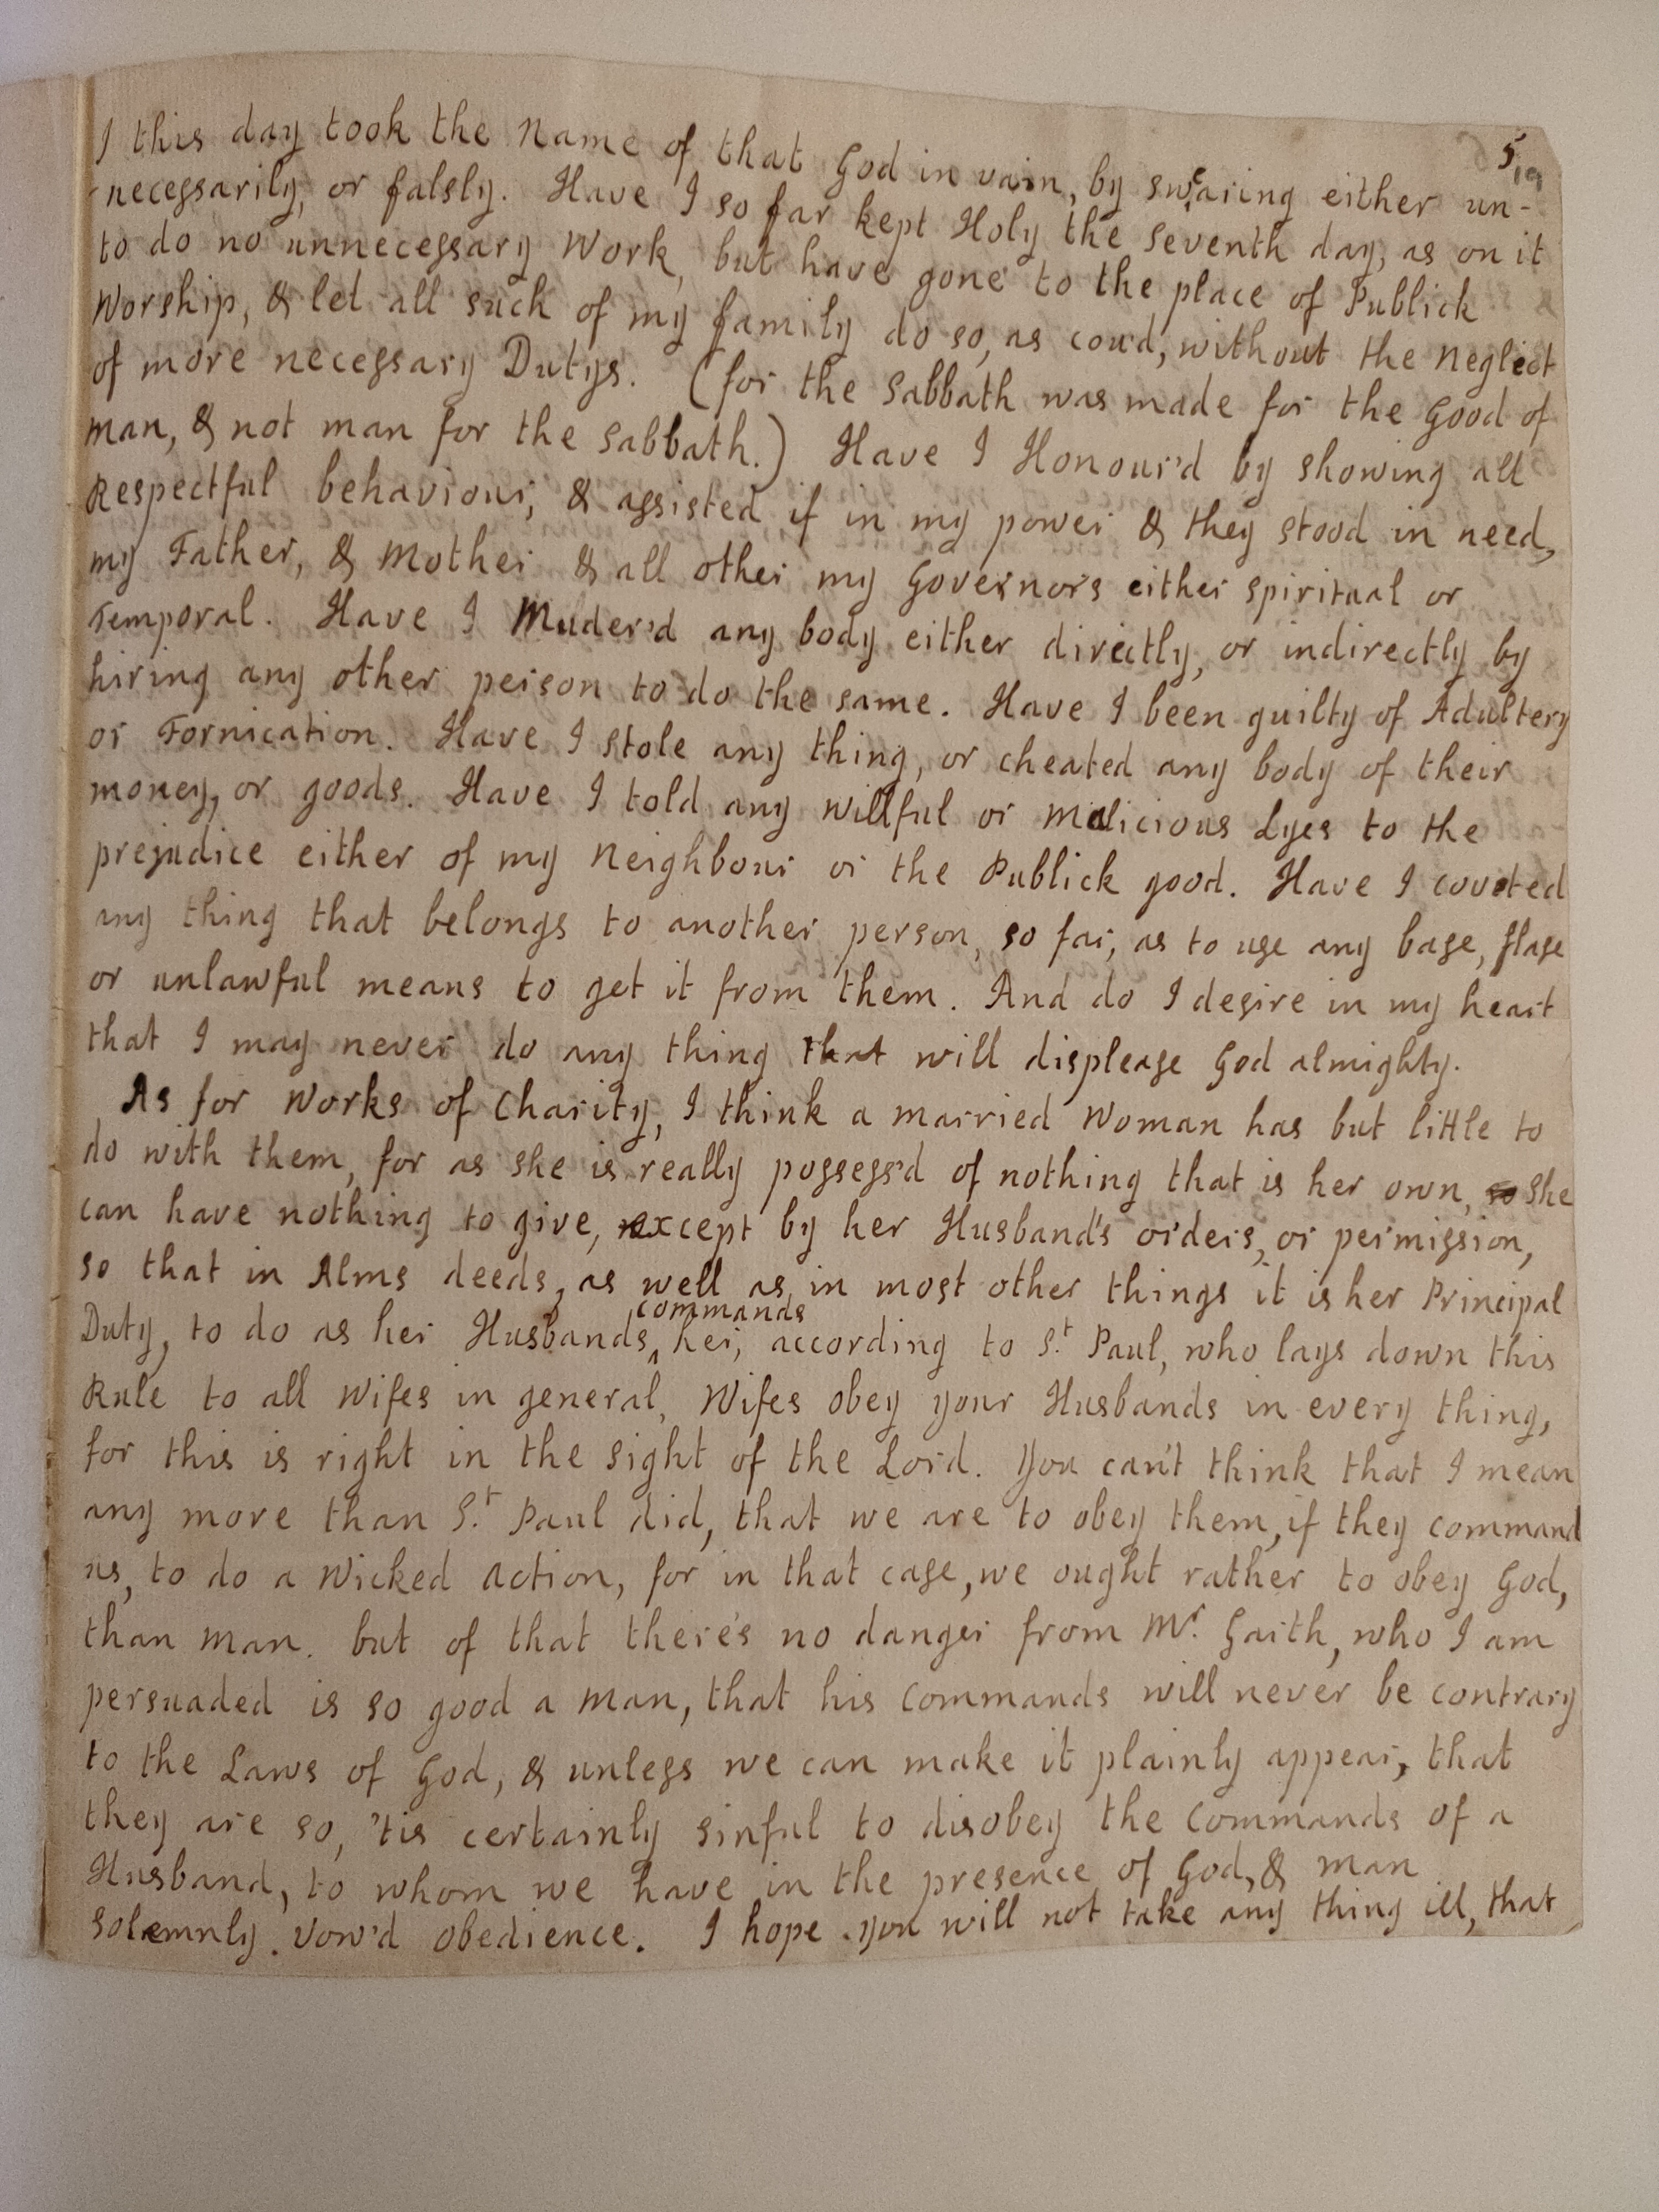 5
I this day took the Name of that God in vain, by swearing either un-
necessarily, or falsly. Have I so far kept Holy the seventh day, as on it
to do no unnecessary Work, but have gone to the place of Publick
Worship, & let all such of my family do so, as cou'd, without the Neglect
of more necessary Dutys. (for the Sabbath was made for the Good of
man, & not man for the Sabbath.) Have I Honour'd by showing all
Respectful behaviour, & assisted if in my power & they stood in need,
my Father, & Mother & all other my Governors either spiritual or
Temporal. Have I Muder'd any body either directly, or indirectly by
hiring any other person to do the same. Have I been guilty of Adultery
or Fornication. Have I stole any thing, or cheated any body of their
money, or goods. Have I told any willful or Malicious Lyes to the
prejudice either of my Neighbour or the Publick good. Have I coveted
any thing that belongs to another person, so far, as to use any base, flase
or unlawful means to get it from them. And do I desire in my heart
that I may never do any thing that will displease God almighty.
As for Works of Charity, I think a married Woman has but little to
do with them, for as she is really possess'd of nothing that is her own, so She
can have nothing to give, except by her Husband's orders, or permission,
so that in Alms deeds, as well as in most other things it is her Principal
Duty, to do as her Husbands commands her, according to St. Paul, who lays down this
Rule to all Wifes in general, Wifes obey your Husbands in every thing,
for this is right in the sight of the Lord. You can't think that I mean
any more than St. Paul did, that we are to obey them, if they command
us, to do a Wicked action, for in that case, we ought rather to obey God,
than man. but of that there's no danger from Mr. Garth, who I am
persuaded is so good a man, that his Commands will never be contrary
to the Laws of God, & unless we can make it plainly appear, that
they are so, 'tis certainly sinful to disobey the Commands of a
Husband, to whom we have in the presence of God, & man
solemnly vow'd obedience. I hope you will not take any thing ill, that